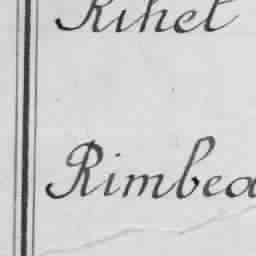 Rihet
Rimbea